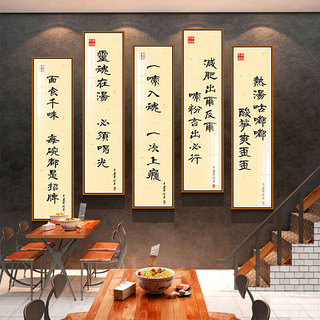 面食千味 每碗都是招牌
靈魂在湯 必須喝光
一嗦入魂 一次上癮
減肥出爾反爾
嗦粉言出必行
熱湯咕嘟嘟
酸筍爽歪歪